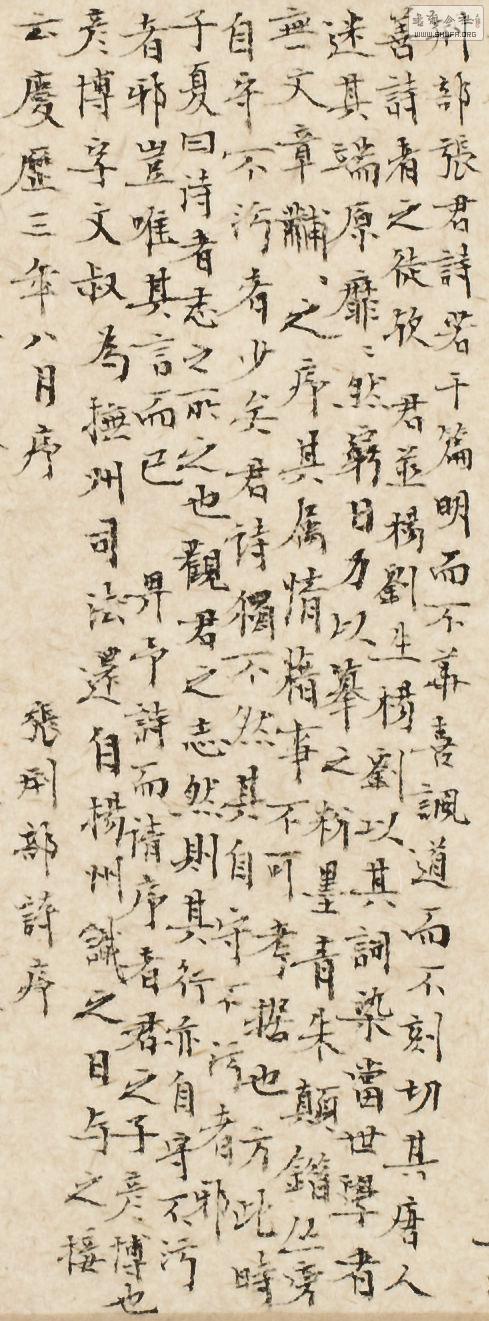 刑部張君詩若干篇明而不華喜諷道而不刻切其唐人
善詩者之徒歟 君並楊劉生楊劉以其詞染當世學者
迷其端原靡〻然窮日力以摹之粉墨青朱顛錯丛
無文章黼〻之序其属情藉事不可考据也方此時
自守不污者少矣君詩獨不然其自守不污者邪
子夏曰詩者志之所之也觀君之志然則其行亦自守不污
者邪豈唯其言而已 畀予詩而請序者君之子彦博也
彦博字文叔為撫州司法還自楊州識之日与之接
云慶歷三年八月序 張刑部詩序
www.SHUFA.ORG